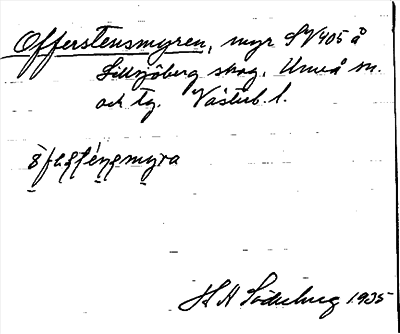 Offerstensmyren, myr SV 405 å
Lillsjöberg skog, Umeå sn.
och tg. Västerb. l.
H A Söderberg 1935